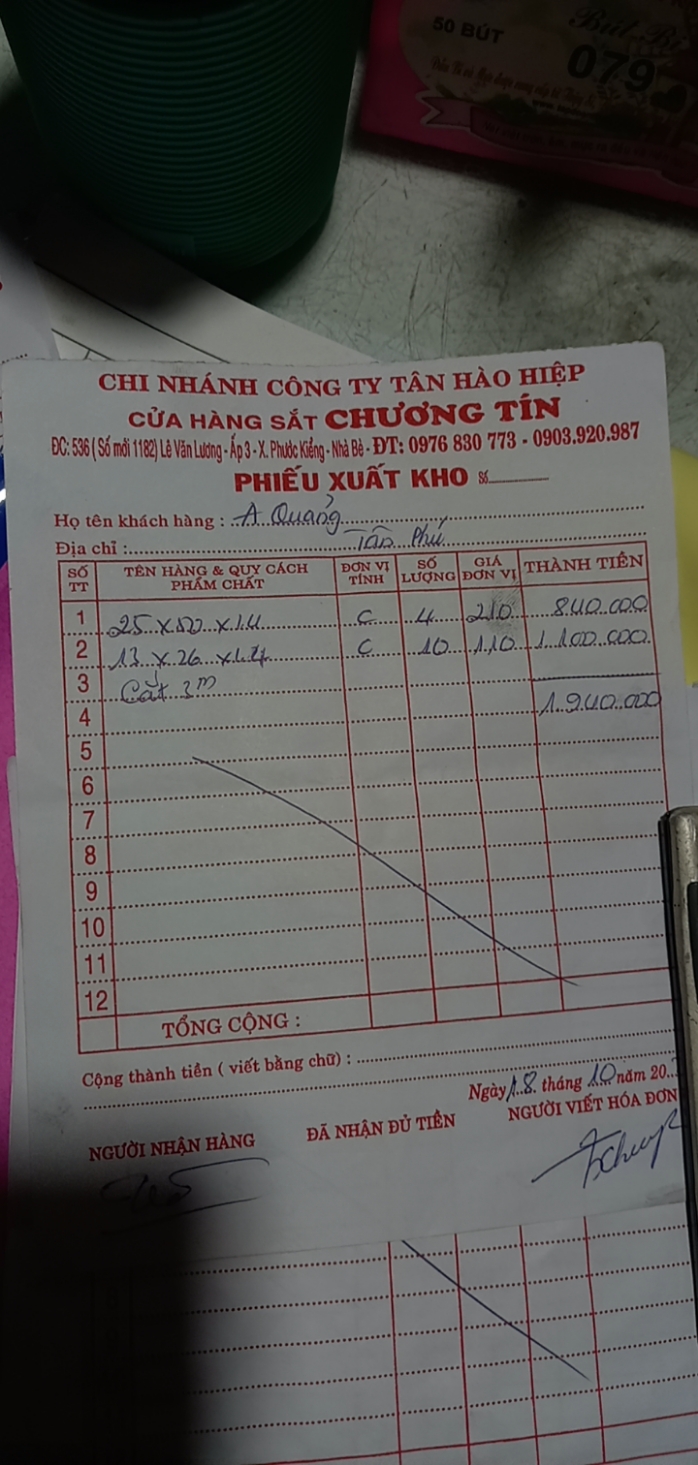 50 BÚT
Bút Bi
079
CHI NHÁNH CÔNG TY TÂN HÀO HIỆP
CỬA HÀNG SẮT CHƯƠNG TÍN
ĐC: 536 ( Số mới 1182) Lê Văn Lương - Ấp 3 - X. Phước Kiểng - Nhà Bè - ĐT: 0976 830 773 - 0903.920.987
PHIẾU XUẤT KHO Số
Họ tên khách hàng : A Quảng
Địa chỉ : Tân Phú
SỐ TT TÊN HÀNG & QUY CÁCH PHẨM CHẤT ĐƠN VỊ TÍNH SỐ LƯỢNG GIÁ ĐƠN VỊ THÀNH TIỀN
1 25 x 50 x 1.4 C 4 210 840.000
2 13 x 26 x 1.4 C 10 110 1.100.000
3 Cắt 3m
4 1.940.000
5
6
7
8
9
10
11
12
TỔNG CỘNG :
Cộng thành tiền ( viết bằng chữ) :
Ngày 18 tháng 10 năm 20
NGƯỜI NHẬN HÀNG ĐÃ NHẬN ĐỦ TIỀN NGƯỜI VIẾT HÓA ĐƠN